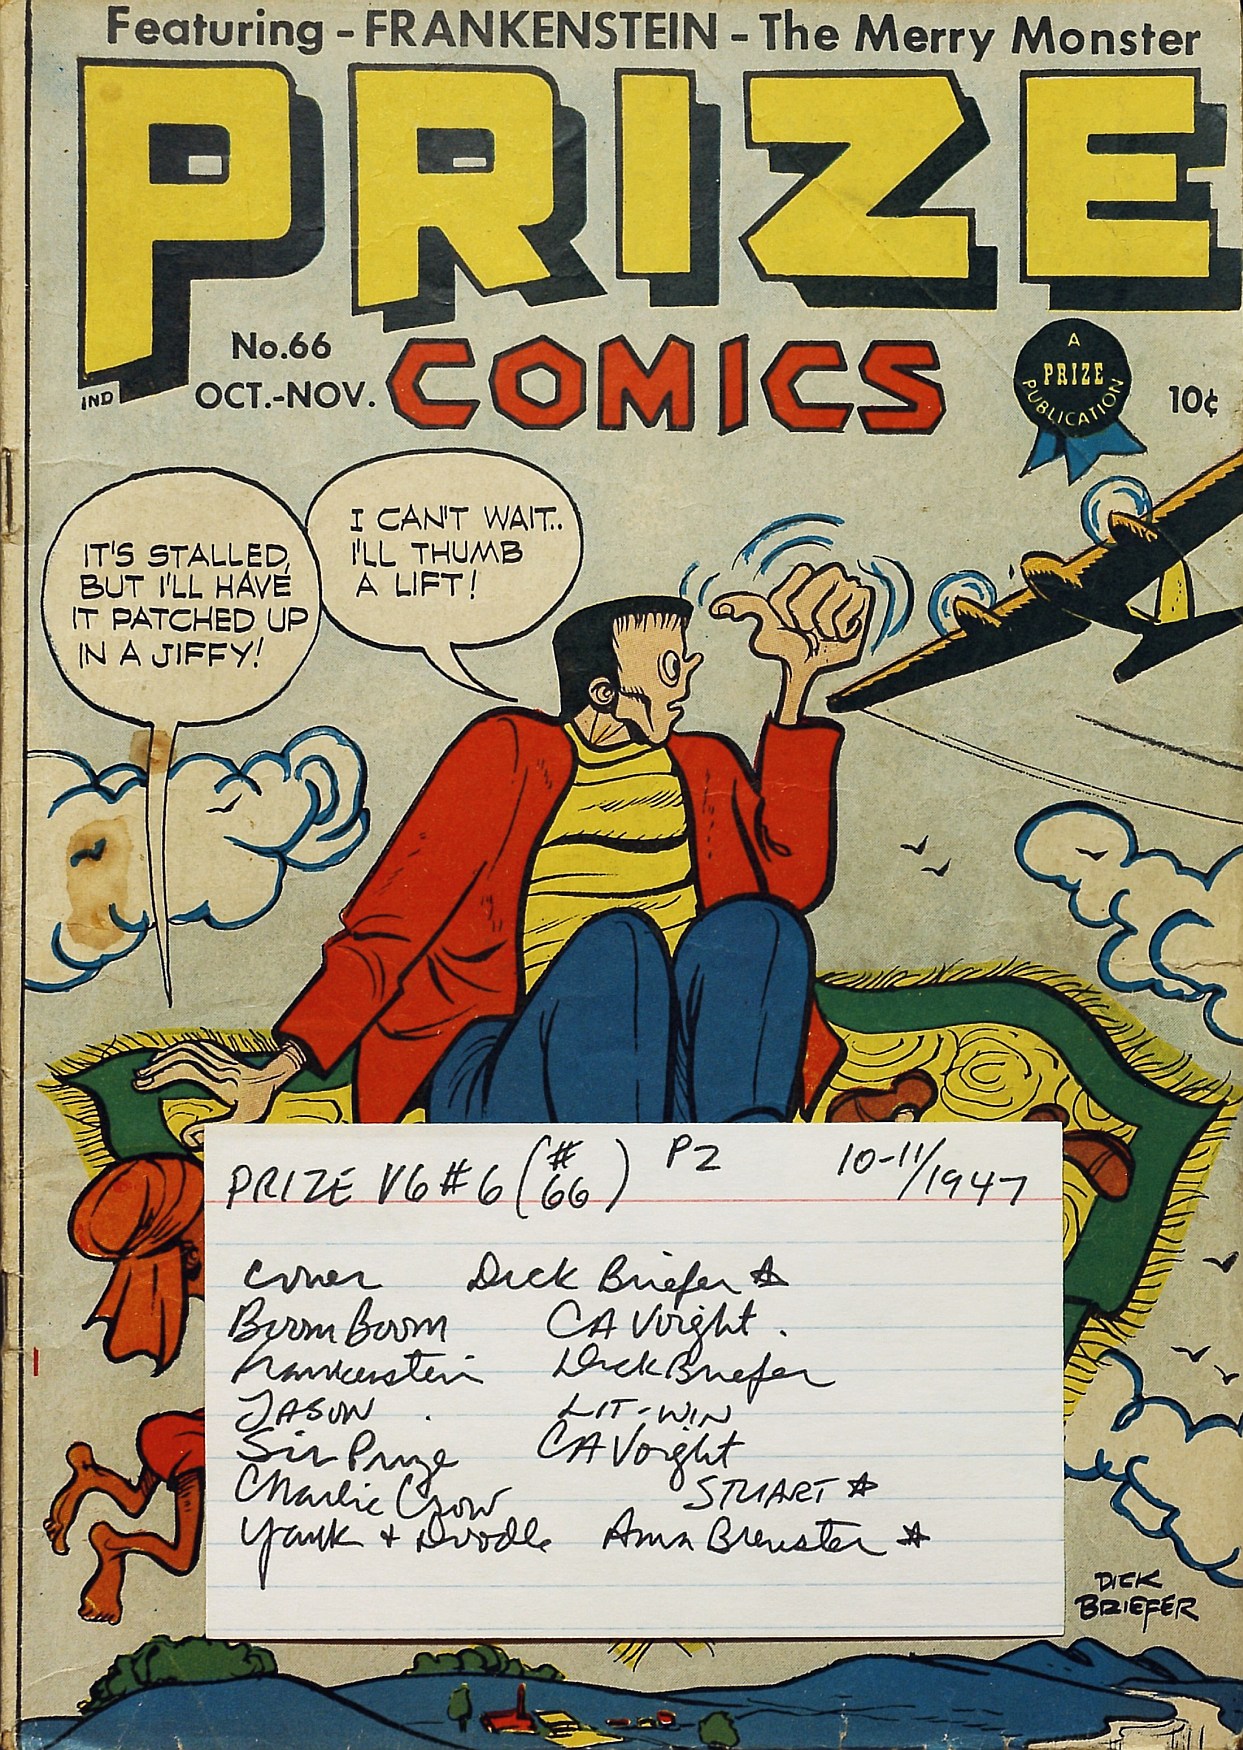 Featuring - FRANKENSTEIN - The Merry Monster
PRIZE
COMICS
No.66
OCT.-NOV.
IND
A
PRIZE
PUBLICATION
10¢
IT'S STALLED,
BUT I'LL HAVE
IT PATCHED UP
IN A JIFFY!
I CAN'T WAIT..
I'LL THUMB
A LIFT!
PRIZE V6 #6 (#66) P2 10-11/1947
Cover Dick Briefer ☆
Boom Boom CA Voight.
Frankenstein Dick Briefer
JASON. LIT-WIN
Sir Prize CA Voight
Charlie Crow STUART ☆
Yank + Doodle Ann Brewster ☆
DICK
BRIEFER